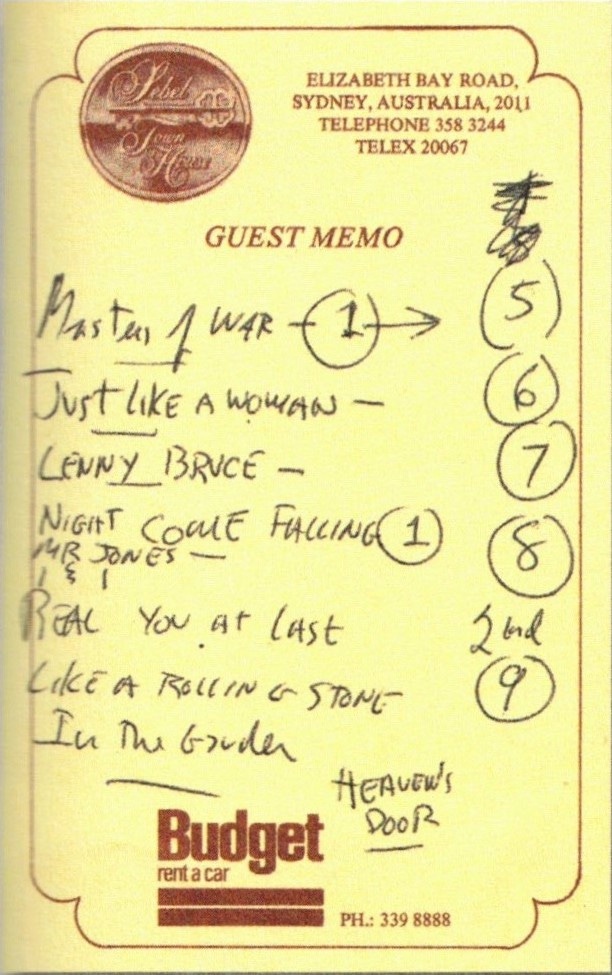 Sebel
Town
House
ELIZABETH BAY ROAD,
SYDNEY, AUSTRALIA, 2011
TELEPHONE 358 3244
TELEX 20067
GUEST MEMO
Masters of WAR – 1 → 5
JUST LIKE A WOMAN – 6
LENNY BRUCE – 7
NIGHT COME FALLING 1 8
MR JONES –
REAL YOU AT LAST 2nd
LIKE A ROLLING STONE 9
In The Garden
HEAVEN'S
DOOR
Budget
rent a car
PH.: 339 8888